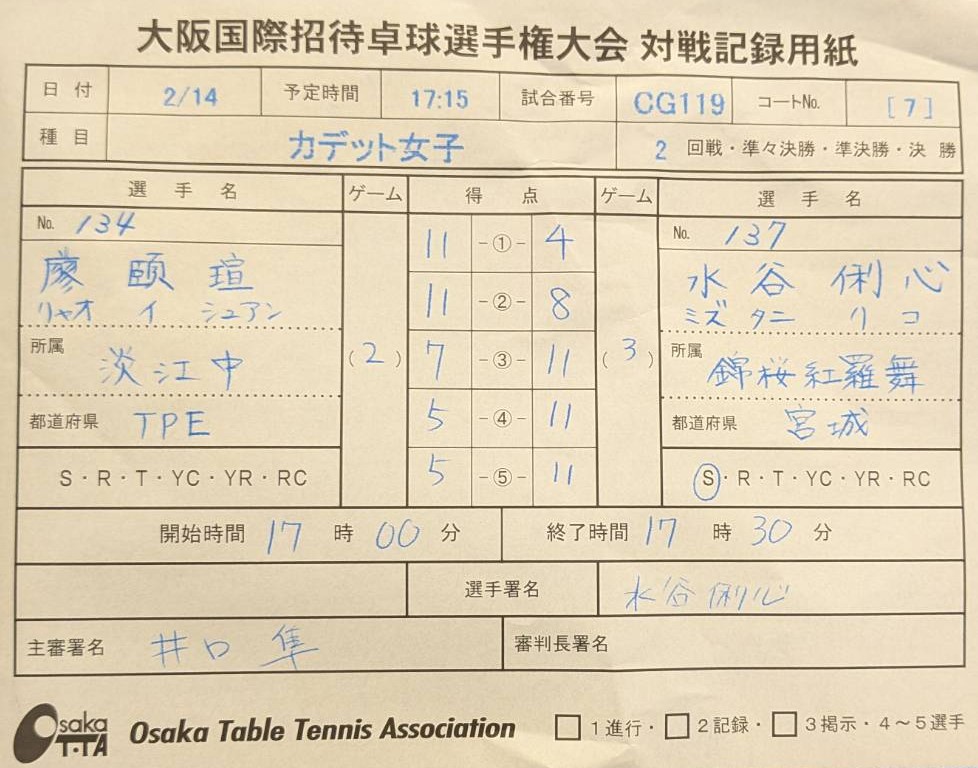 大阪国際招待卓球選手権大会 対戦記録用紙
日 付 2/14 予定時間 17:15 試合番号 CG119 コートNo. [ 7 ]
種 目 カデット女子 2 回戦・準々決勝・準決勝・決 勝
選 手 名 ゲーム 得 点 ゲーム 選 手 名
No. 134 11 -①- 4 No. 137
廖 頤 瑄 水 谷 俐 心
リャオ イ シュアン 11 -②- 8 ミズ タニ リ コ
所属 淡江中 (2) 7 -③- 11 (3) 所属 錦桜紅羅舞
都道府県 TPE 5 -④- 11 都道府県 宮城
S・R・T・YC・YR・RC 5 -⑤- 11 S・R・T・YC・YR・RC
開始時間 17 時 00 分 終了時間 17 時 30 分
選手署名 水谷俐心
主審署名 井口 隼 審判長署名
Osaka T・TA Osaka Table Tennis Association □1進行・□2記録・□3掲示・4～5選手